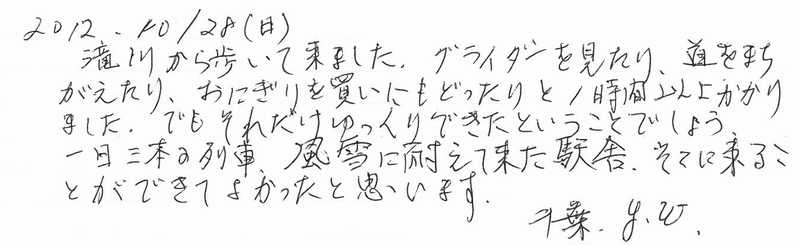 2012.10/28(日)
滝川から歩いて来ました。グライダーを見たり、道をまち
がえたり、おにぎりを買いにもどったりと1時間以上かかり
ました。でもそれだけゆっくりできたということでしょう。
一日三本の列車、風雪に耐えて来た駅舎、そこに来るこ
とができてよかったと思います。
千葉. Y.W.